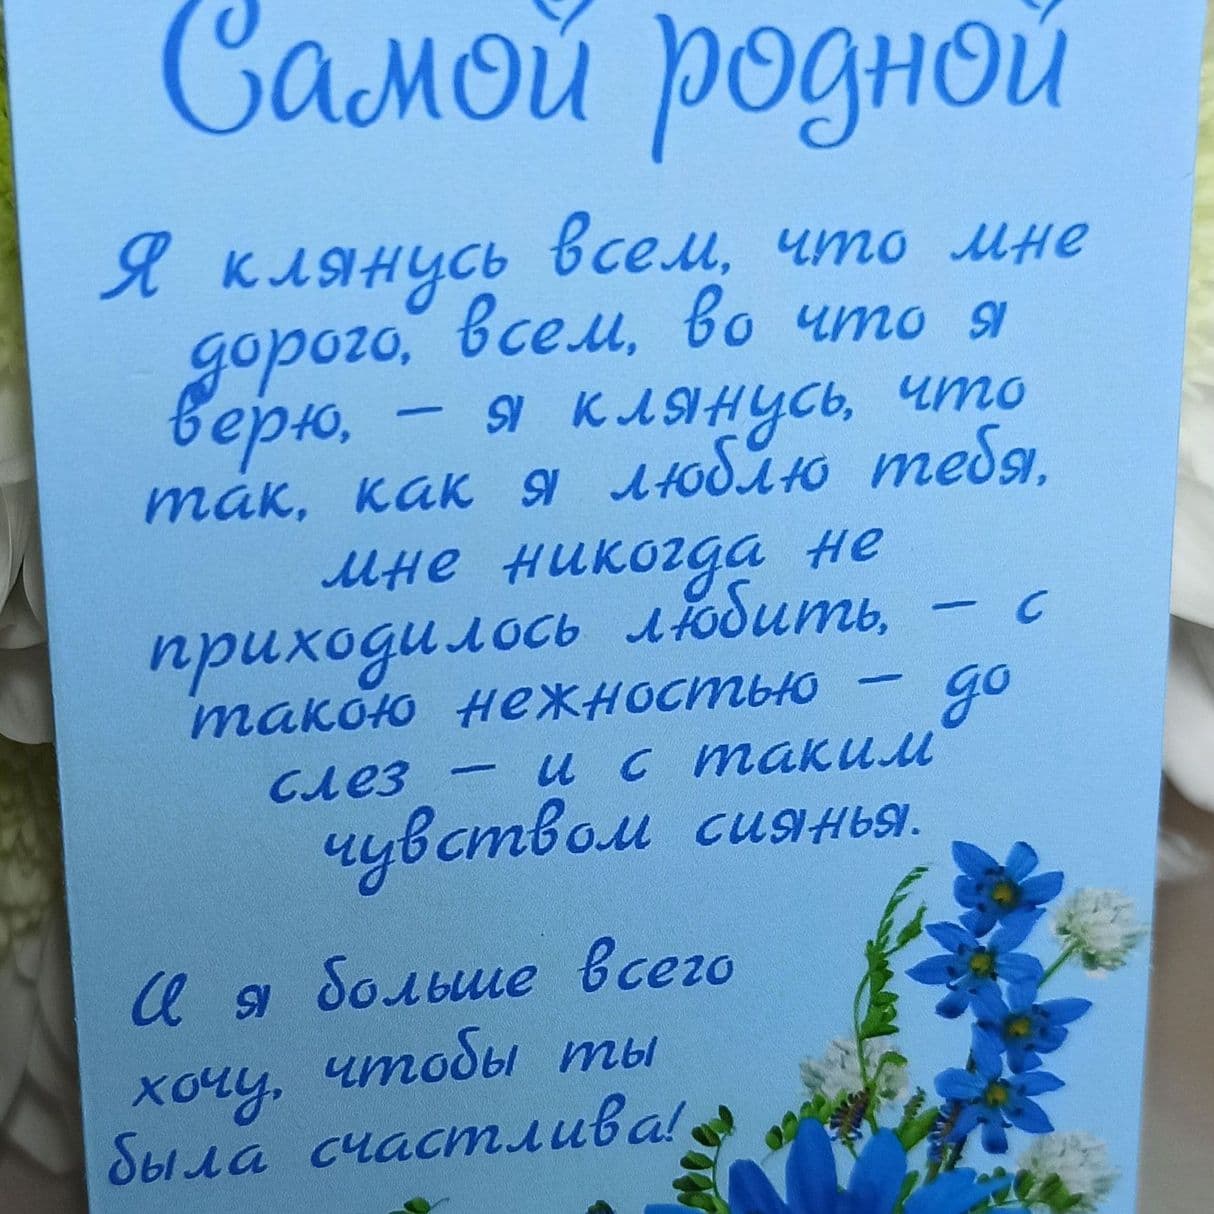 Самой родной
Я клянусь всем, что мне
дорого, всем, во что я
верю, – я клянусь, что
так, как я люблю тебя,
мне никогда не
приходилось любить, – с
такою нежностью – до
слез – и с таким
чувством сиянья.
И я больше всего
хочу, чтобы ты
была счастлива!